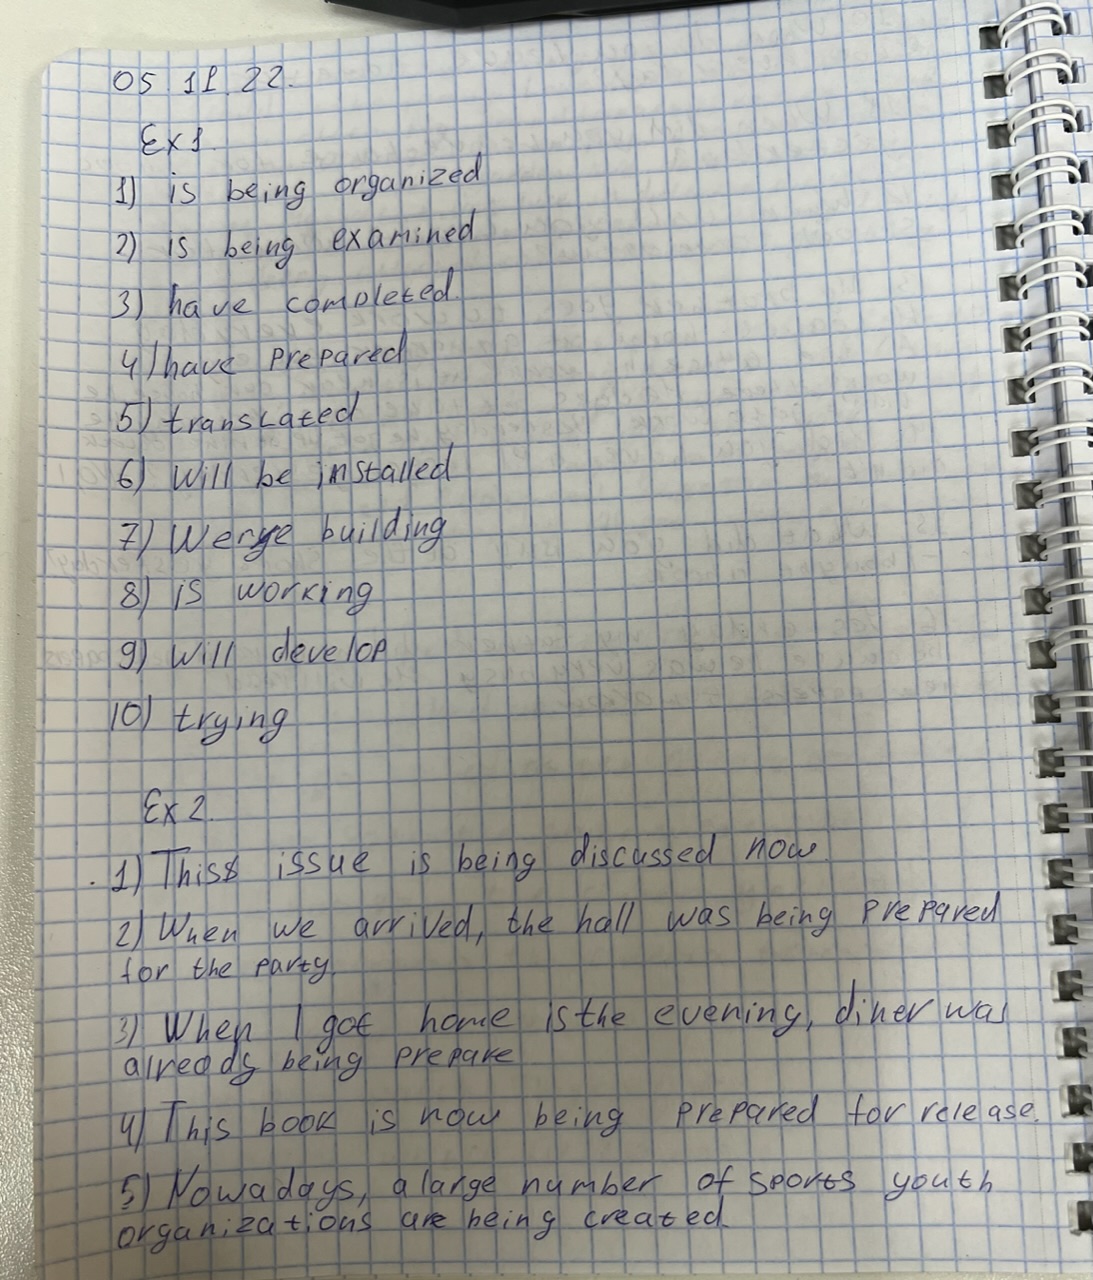 05.11.22.
Ex 1.
1) is being organized
2) is being examined
3) have completed.
4) have prepared
5) translated
6) Will be installed
7) Were building
8) is working
9) will develop
10) trying
Ex 2.
1) This issue is being discussed now.
2) When we arrived, the hall was being prepared
for the party.
3) When I got home is the evening, diner was
already being prepare
4) This book is now being prepared for release.
5) Nowadays, a large number of sports youth
organizations are being created.